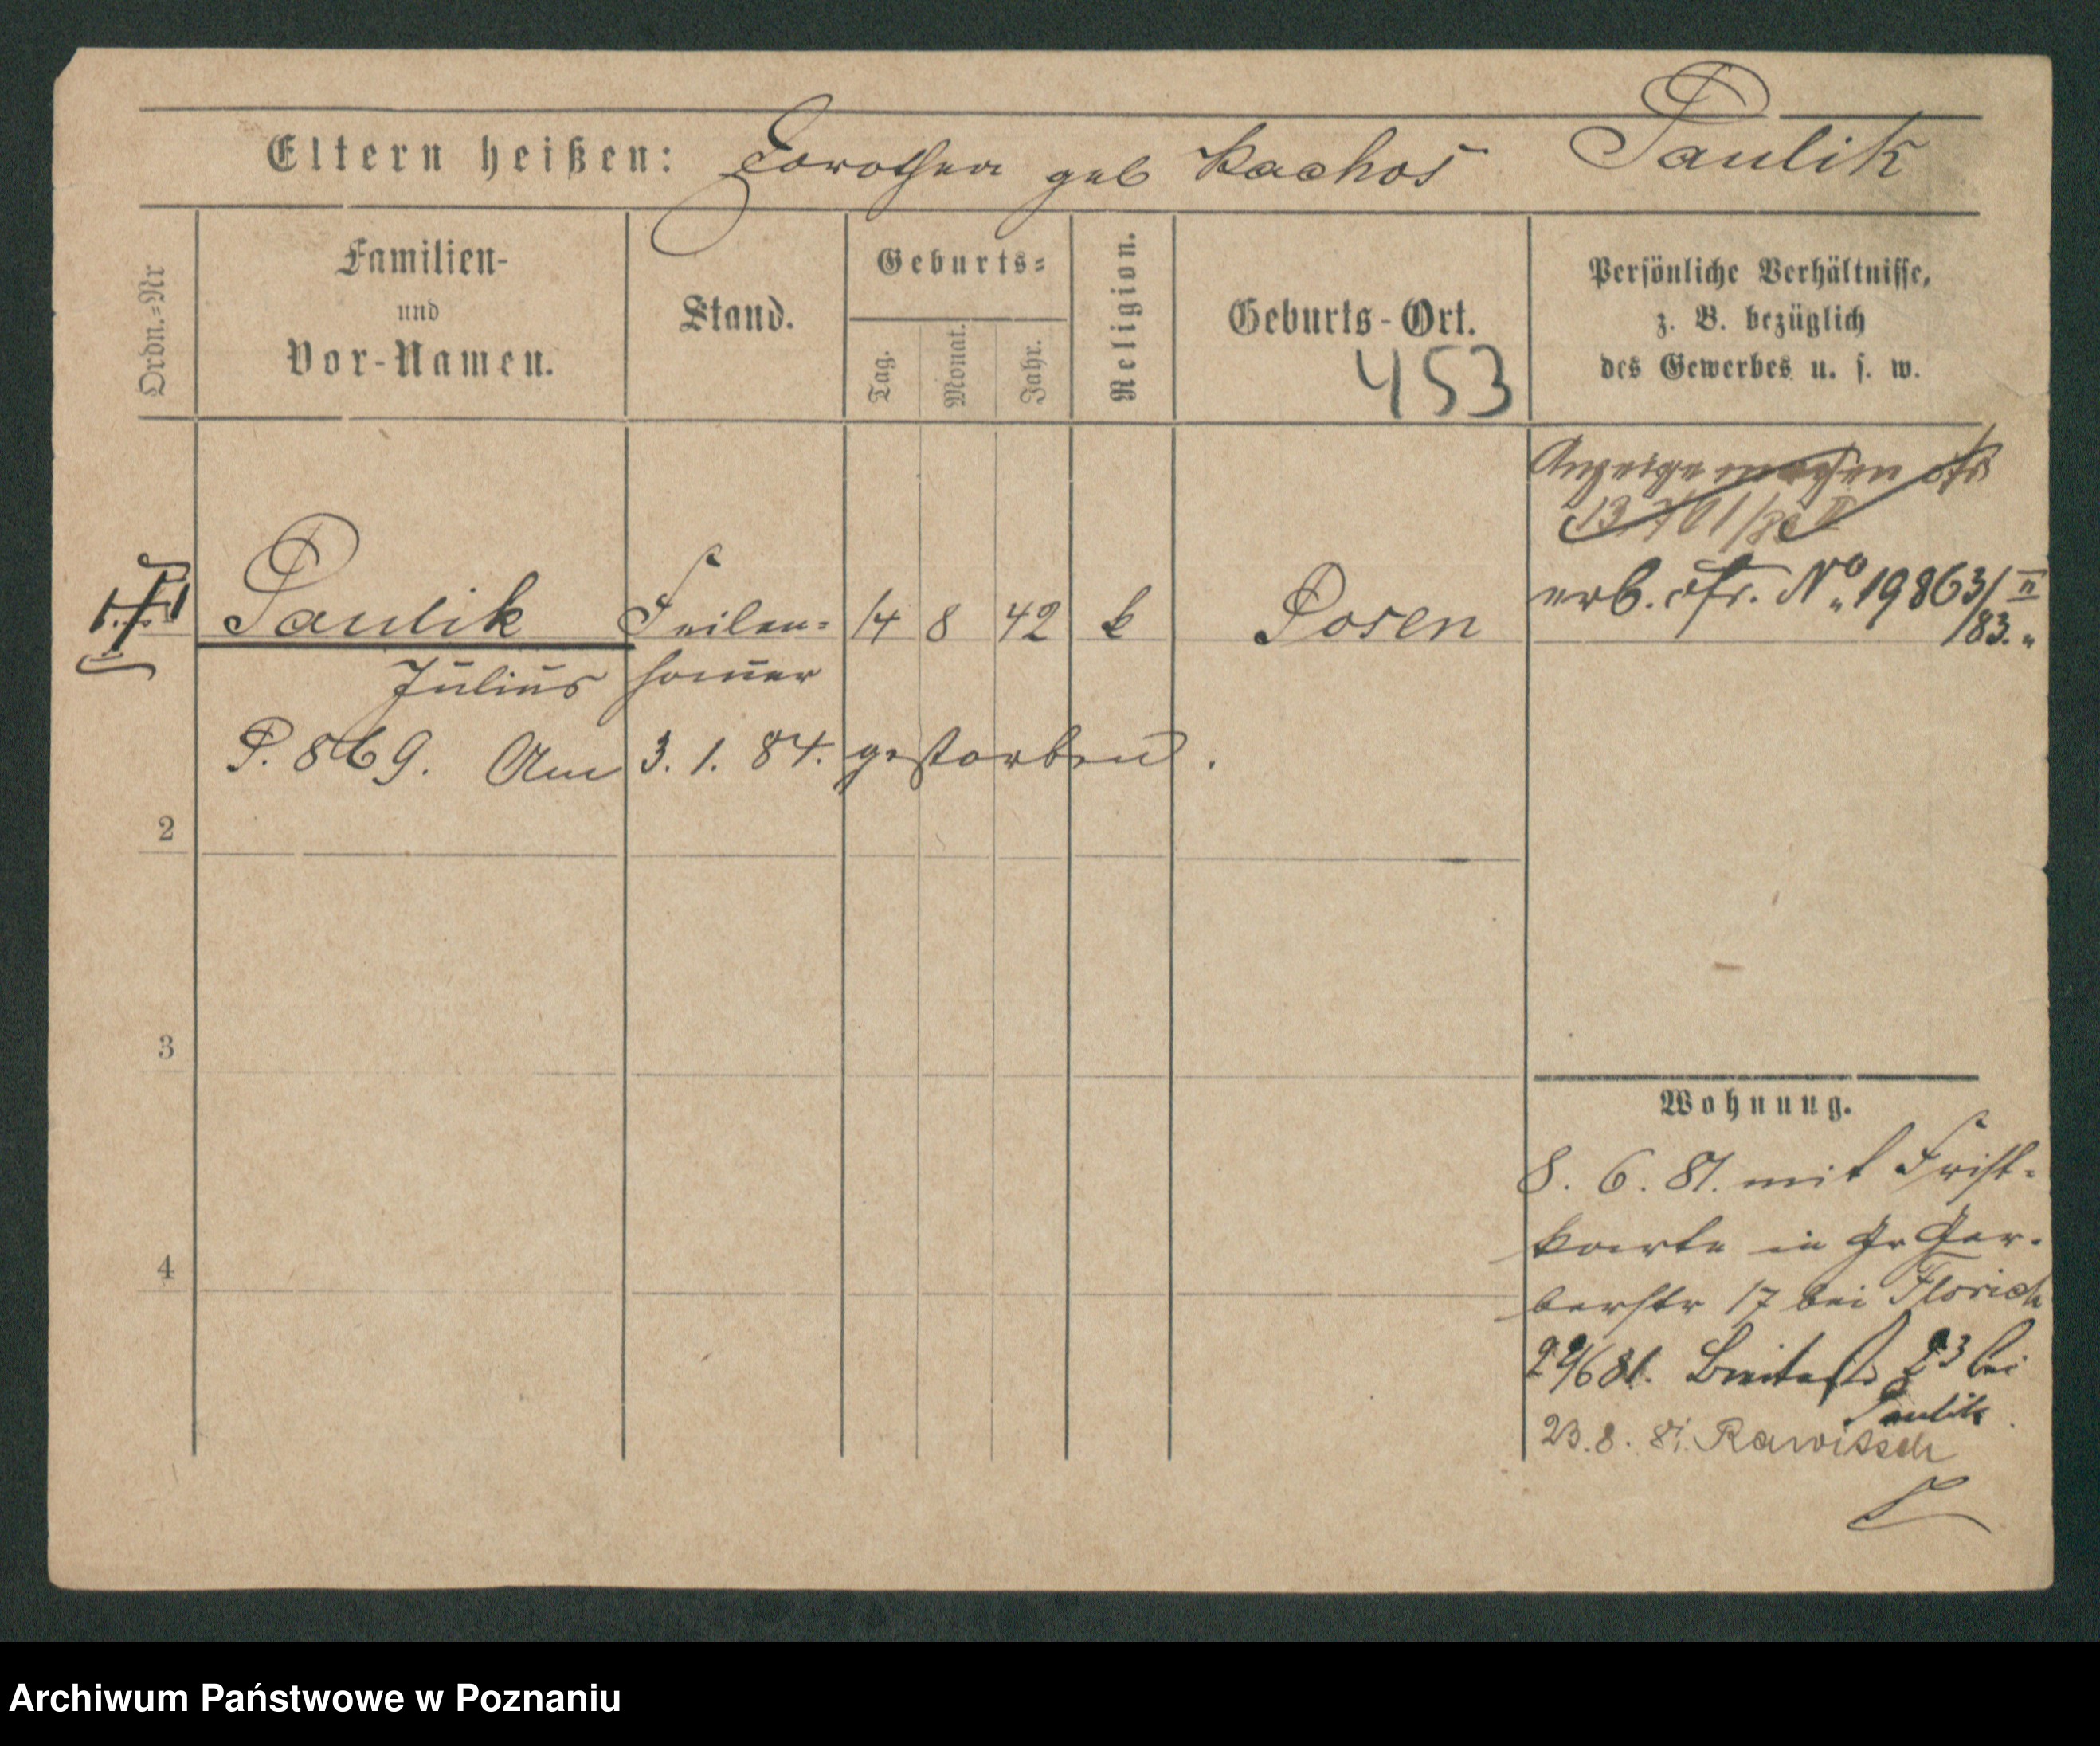 Eltern heißen: Dorothea geb Kachos Paulik
Ordn.=Nr
Familien-
und
Vor-Namen.
Stand.
Geburts=
Tag.
Monat.
Jahr.
Religion.
Geburts-Ort.
453
Persönliche Verhältnisse,
z. B. bezüglich
des Gewerbes u. s. w.
Anzeige machen
Paulik Feilen= 14 8 42 k Posen
No 19863/II
/83.
Julius hauer
P. 869. Am 3. 1. 84. gestorben.
2
3
4
Wohnung.
8. 6. 81. mit Frist-
karte in Gr Ger-
berstr 17 bei Florich
29/6 81. Breitestr 23 bei
Paulik
23. 8. 81. Rawitsch
Archiwum Państwowe w Poznaniu